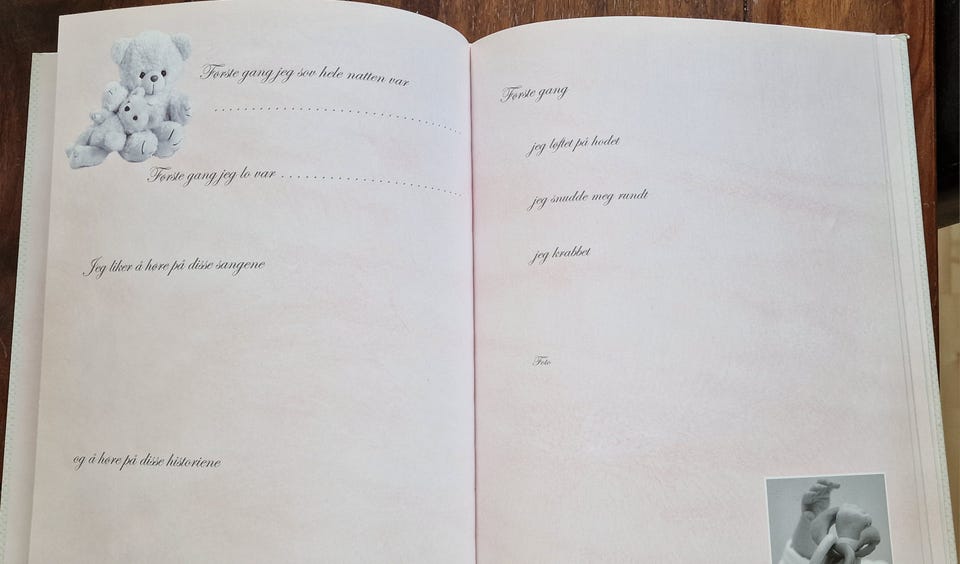 Første gang jeg sov hele natten var
..............................
Første gang jeg lo var ......................
Jeg liker å høre på disse sangene
og å høre på disse historiene
Første gang
jeg løftet på hodet
jeg snudde meg rundt
jeg krabbet
Foto